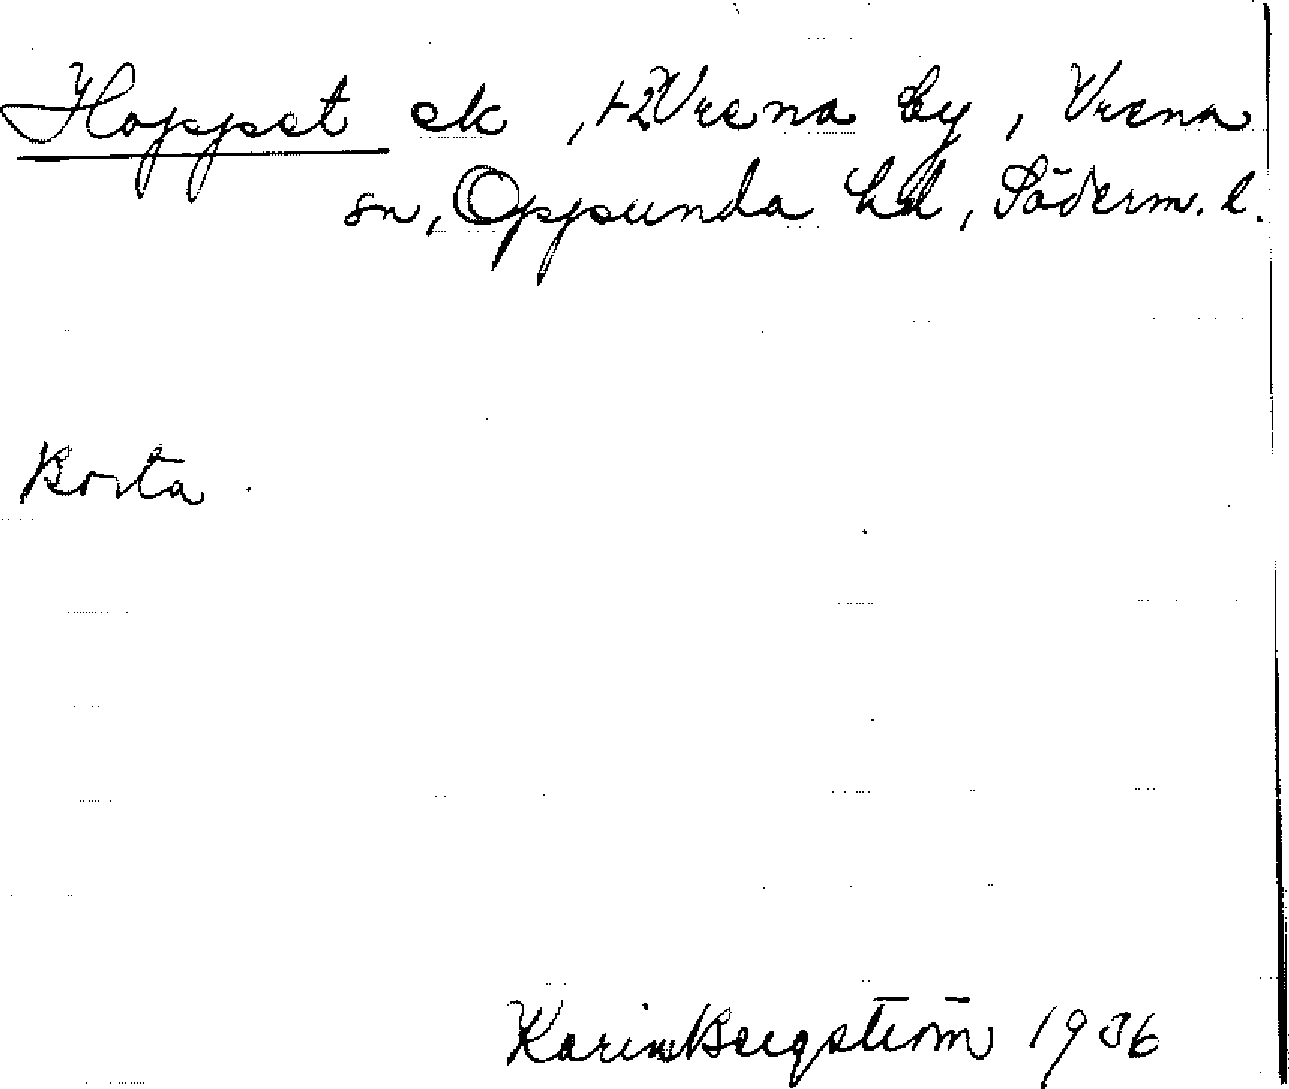 Hoppet ek , 1-2 Vrena by , Vrena
sn, Oppunda hd, Söderm. l.
Borta .
Karin Bergström 1936